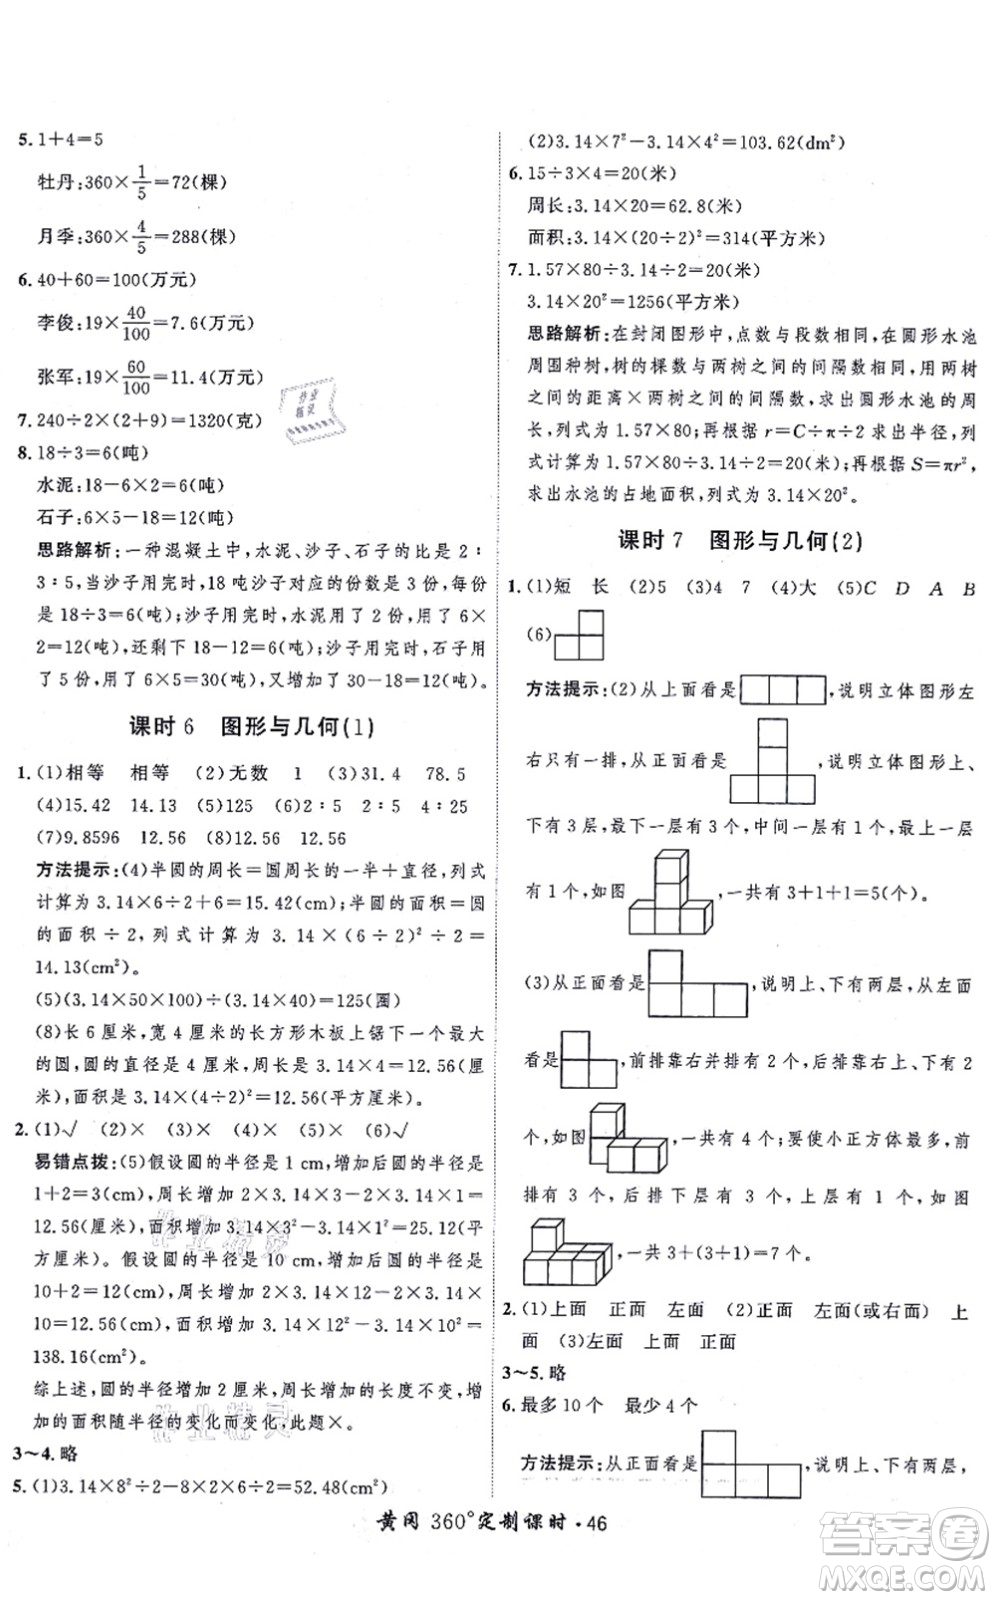 5. 1+4=5
牡丹:360×1/5=72(棵)
月季:360×4/5=288(棵)
6. 40+60=100(万元)
李俊:19×40/100=7.6(万元)
张军:19×60/100=11.4(万元)
7. 240÷2×(2+9)=1320(克)
8. 18÷3=6(吨)
水泥:18-6×2=6(吨)
石子:6×5-18=12(吨)
思路解析:一种混凝土中,水泥、沙子、石子的比是 2∶
3∶5,当沙子用完时,18 吨沙子对应的份数是 3 份,每份
是 18÷3=6(吨);沙子用完时,水泥用了 2 份,用了 6×
2=12(吨),还剩 18-12=6(吨);沙子用完时,石子用
了 5 份,用了 6×5=30(吨),又增加了 30-18=12(吨)。
课时 6 图形与几何(1)
1. (1)相等 相等 (2)无数 1 (3)31.4 78.5
(4)15.42 14.13 (5)125 (6)2∶5 2∶5 4∶25
(7)9.8596 12.56 (8)12.56 12.56
方法提示:(4)半圆的周长=圆周长的一半+直径,列式
计算为 3.14×6÷2+6=15.42(cm);半圆的面积=圆
的面积÷2,列式计算为 3.14×(6÷2)²÷2=
14.13(cm²)。
(5)(3.14×50×100)÷(3.14×40)=125(圈)
(8)长 6 厘米,宽 4 厘米的长方形木板上锯下一个最大
的圆,圆的直径是 4 厘米,周长是 3.14×4=12.56(厘
米),面积是 3.14×(4÷2)²=12.56(平方厘米)。
2. (1)√ (2)× (3)× (4)× (5)× (6)√
易错点拨:(5)假设圆的半径是 1 cm,增加后圆的半径是
1+2=3(cm),周长增加 2×3.14×3-2×3.14×1=
12.56(厘米),面积增加 3.14×3²-3.14×1²=25.12(平
方厘米)。假设圆的半径是 10 cm,增加后圆的半径是
10+2=12(cm),周长增加 2×3.14×12-2×3.14×
10=12.56(cm),面积增加 3.14×12²-3.14×10²=
138.16(cm²)。
综上述,圆的半径增加,周长增加的长度不变,增加
的面积随半径的变化而变化,此题×。
3~4. 略
5. (1)3.14×8²÷2-8×2×2÷2=52.48(cm²)
(2)3.14×7²-3.14×4²=103.62(dm²)
6. 15÷3×4=20(米)
周长:3.14×20=62.8(米)
面积:3.14×(20÷2)²=314(平方米)
7. 1.57×80÷3.14÷2=20(米)
3.14×20²=1256(平方米)
思路解析:在封闭图形中,点数与段数相同,在圆形水池
周围种树,树的棵数与两树之间的间隔数相同,两树之
间的距离×两树之间的间隔数,求出圆形水池的周
长,列式为 1.57×80;再根据 r=C÷π÷2 求出半径,列
式计算为 1.57×80÷3.14÷2=20(米);再根据 S=πr²,
求出水池的占地面积,列式为 3.14×20²。
课时 7 图形与几何(2)
1. (1)短 长 (2)5 (3)4 7 (4)大 (5)C D A B
(6)
方法提示:(2)从上面看是 ,说明立体图形左
右只有一排,从正面看是 ,说明立体图形上、
下有 3 层,最下一层有 3 个,中间一层有 1 个,最上一层
有 1 个,如图 ,一共有 3+1+1=5(个)。
(3)从正面看是 ,说明上、下有两层,从左面
看是 ,前排靠右并排有 2 个,后排靠右上、下有 2
个,如图 ,一共有 4 个;要使小正方体最多,前
排有 3 个,后排下层有 3 个,上层有 1 个,如图
,一共 3+(3+1)=7 个。
2. (1)上面 正面 左面 (2)正面 左面(或右面) 上
面 (3)左面 上面 正面
3~5. 略
6. 最多 10 个 最少 4 个
方法提示:从正面看是 ,说明上、下有两层,
黄冈 360°定制课时·46
作业精灵
作业精灵
作业精灵
答案圈
MXQE.COM